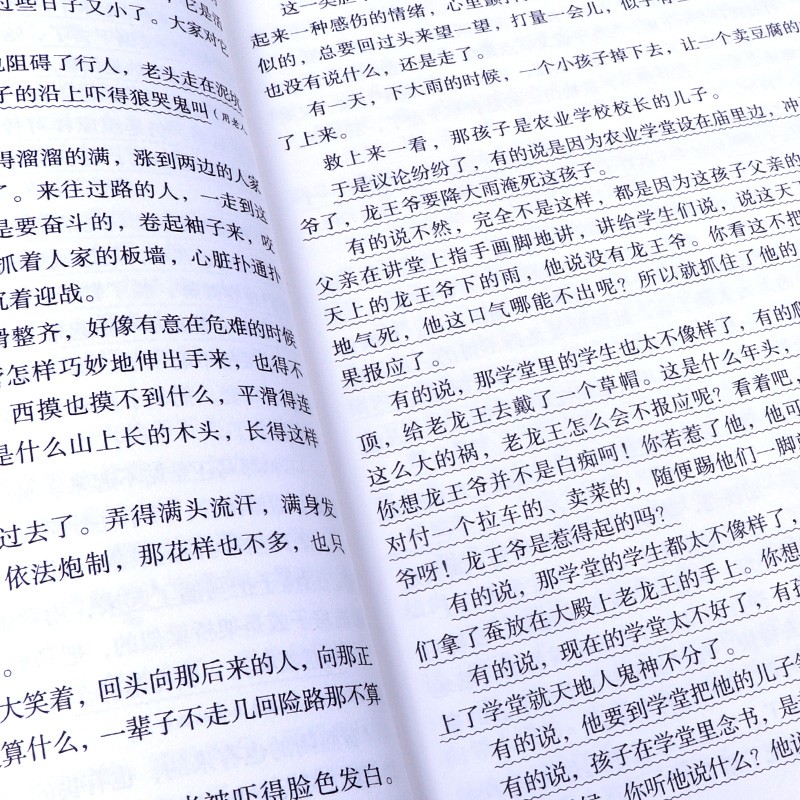 过些日子又小了。大家对它
也阻碍了行人，老头走在泥坑
子的沿上吓得狼哭鬼叫（用老人
得溜溜的满，涨到两边的人家
了。来往过路的人，一走到这
是要奋斗的，卷起袖子来，咬
抓着人家的板墙，心脏扑通扑
沉着迎战。
滑整齐，好像有意在危难的时候
怎样巧妙地伸出手来，也得不
西摸也摸不到什么，平滑得连
是什么山上长的木头，长得这样
过去了。弄得满头流汗，满身发
依法炮制，那花样也不多，也只
。
大笑着，回头向那后来的人，向那正
算什么，一辈子不走几回险路那不算
被吓得脸色发白。
起来一种感伤的情绪，心里颤
似的，总要回过头来望一望，打量一会儿，似乎
也没有说什么，还是走了。
有一天，下大雨的时候，一个小孩子掉下去，让一个卖豆腐的
了上来。
救上来一看，那孩子是农业学校校长的儿子。
于是议论纷纷了，有的说是因为农业学堂设在庙里边，冲
爷了，龙王爷要降大雨淹死这孩子。
有的说不然，完全不是这样，都是因为这孩子父亲的
父亲在讲堂上指手画脚地讲，讲给学生们说，说这天下
天上的龙王爷下的雨，他说没有龙王爷。你看这不把
地气死，他这口气哪能不出呢？所以就抓住了他的
果报应了。
有的说，那学堂里的学生也太不像样了，有的爬
顶，给老龙王去戴了一个草帽。这是什么年头，
这么大的祸，老龙王怎么会不报应呢？看着吧，
你想龙王爷并不是白痴呵！你若惹了他，他可
对付一个拉车的、卖菜的，随便踢他们一脚
爷呀！龙王爷是惹得起的吗？
有的说，那学堂的学生都太不像样了，
们拿了蚕放在大殿上老龙王的手上。你想
有的说，现在的学堂太不好了，有孩
上了学堂就天地人鬼神不分了。
有的说，他要到学堂把他的儿子
有的说，孩子在学堂里念书，是
候，你听他说什么？他说